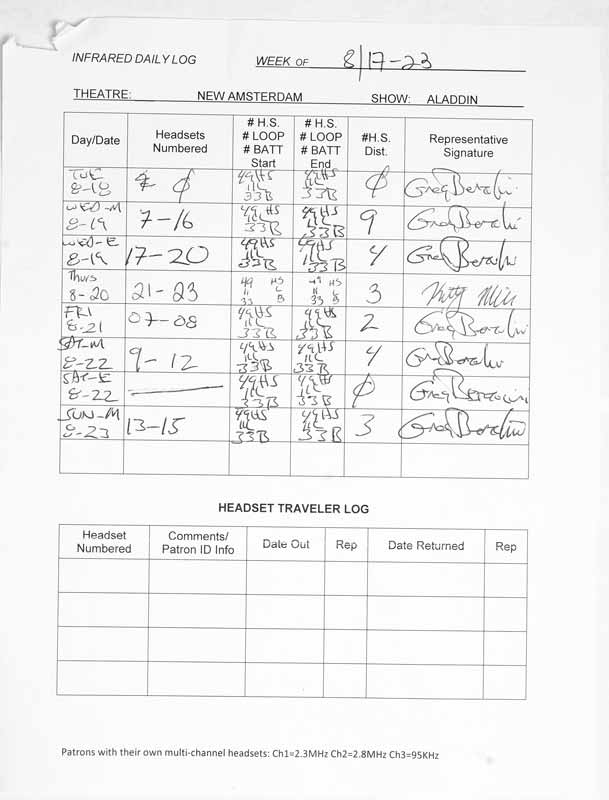 INFRARED DAILY LOG WEEK OF 8/17-23
THEATRE: NEW AMSTERDAM SHOW: ALADDIN
Day/Date Headsets Numbered # H.S. # LOOP # BATT Start # H.S. # LOOP # BATT End #H.S. Dist. Representative Signature
TUE 8-18 ϕ 49HS 11L 33B 49HS 11L 33B ϕ Greg
WED-M 8-19 7-16 49HS 11L 33B 49HS 11L 33B 9 Greg
WED-E 8-19 17-20 49HS 11L 33B 49HS 11L 33B 4 Greg
Thurs 8-20 21-23 49 HS 11 L 33 B 49 HS 11 L 33 B 3
FRI 8-21 07-08 49HS 11L 33B 49HS 11L 33B 2 Greg
SAT-M 8-22 9-12 49HS 11L 33B 49HS 11L 33B 4 Greg
SAT-E 8-22 — 49HS 11L 33B 49HS 11L 33B ϕ Greg
SUN-M 8-23 13-15 49HS 11L 33B 49HS 11L 33B 3 Greg
HEADSET TRAVELER LOG
Headset Numbered Comments/ Patron ID Info Date Out Rep Date Returned Rep
Patrons with their own multi-channel headsets: Ch1=2.3MHz Ch2=2.8MHz Ch3=95KHz